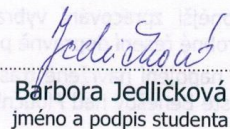 Jedličková
Barbora Jedličková
jméno a podpis studenta